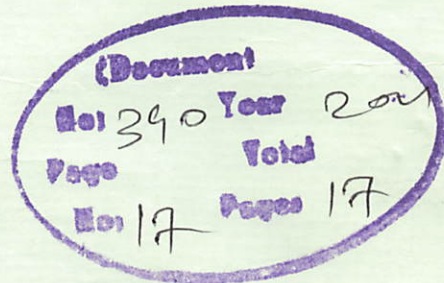 (Document
No: 390 Year
Page Total
No: 17 Pages 17